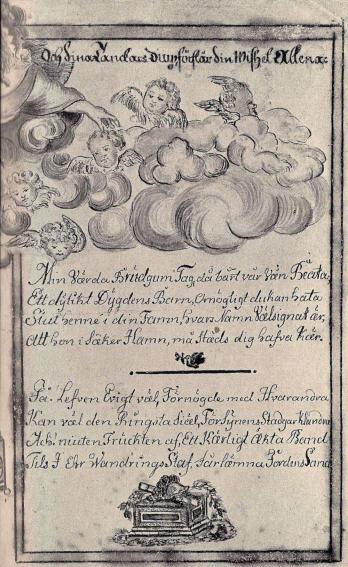 Och dina Tanckars diup förklar din Wishet Allena:
Min Värda Brudgum Tag, då bårt vår Vän Beata,
Ett dylikt Dygdens Barn, Omögligt du kan hata
Slut henne i din Famn, hvars Namn Välsignat är,
Att hon i säker Hamn, må städs dig hafva kär.
Så Lefven Evigt väl, Förnögde med Hvarandra
Kan väl den Ringsta Siäl, Försynens Stadgar klandra
Ach! niuten Fruckten af, Ett Kärligt Ækta Band
Tils J Ehr Wandrings Staf, Får lämna Jordens Sand